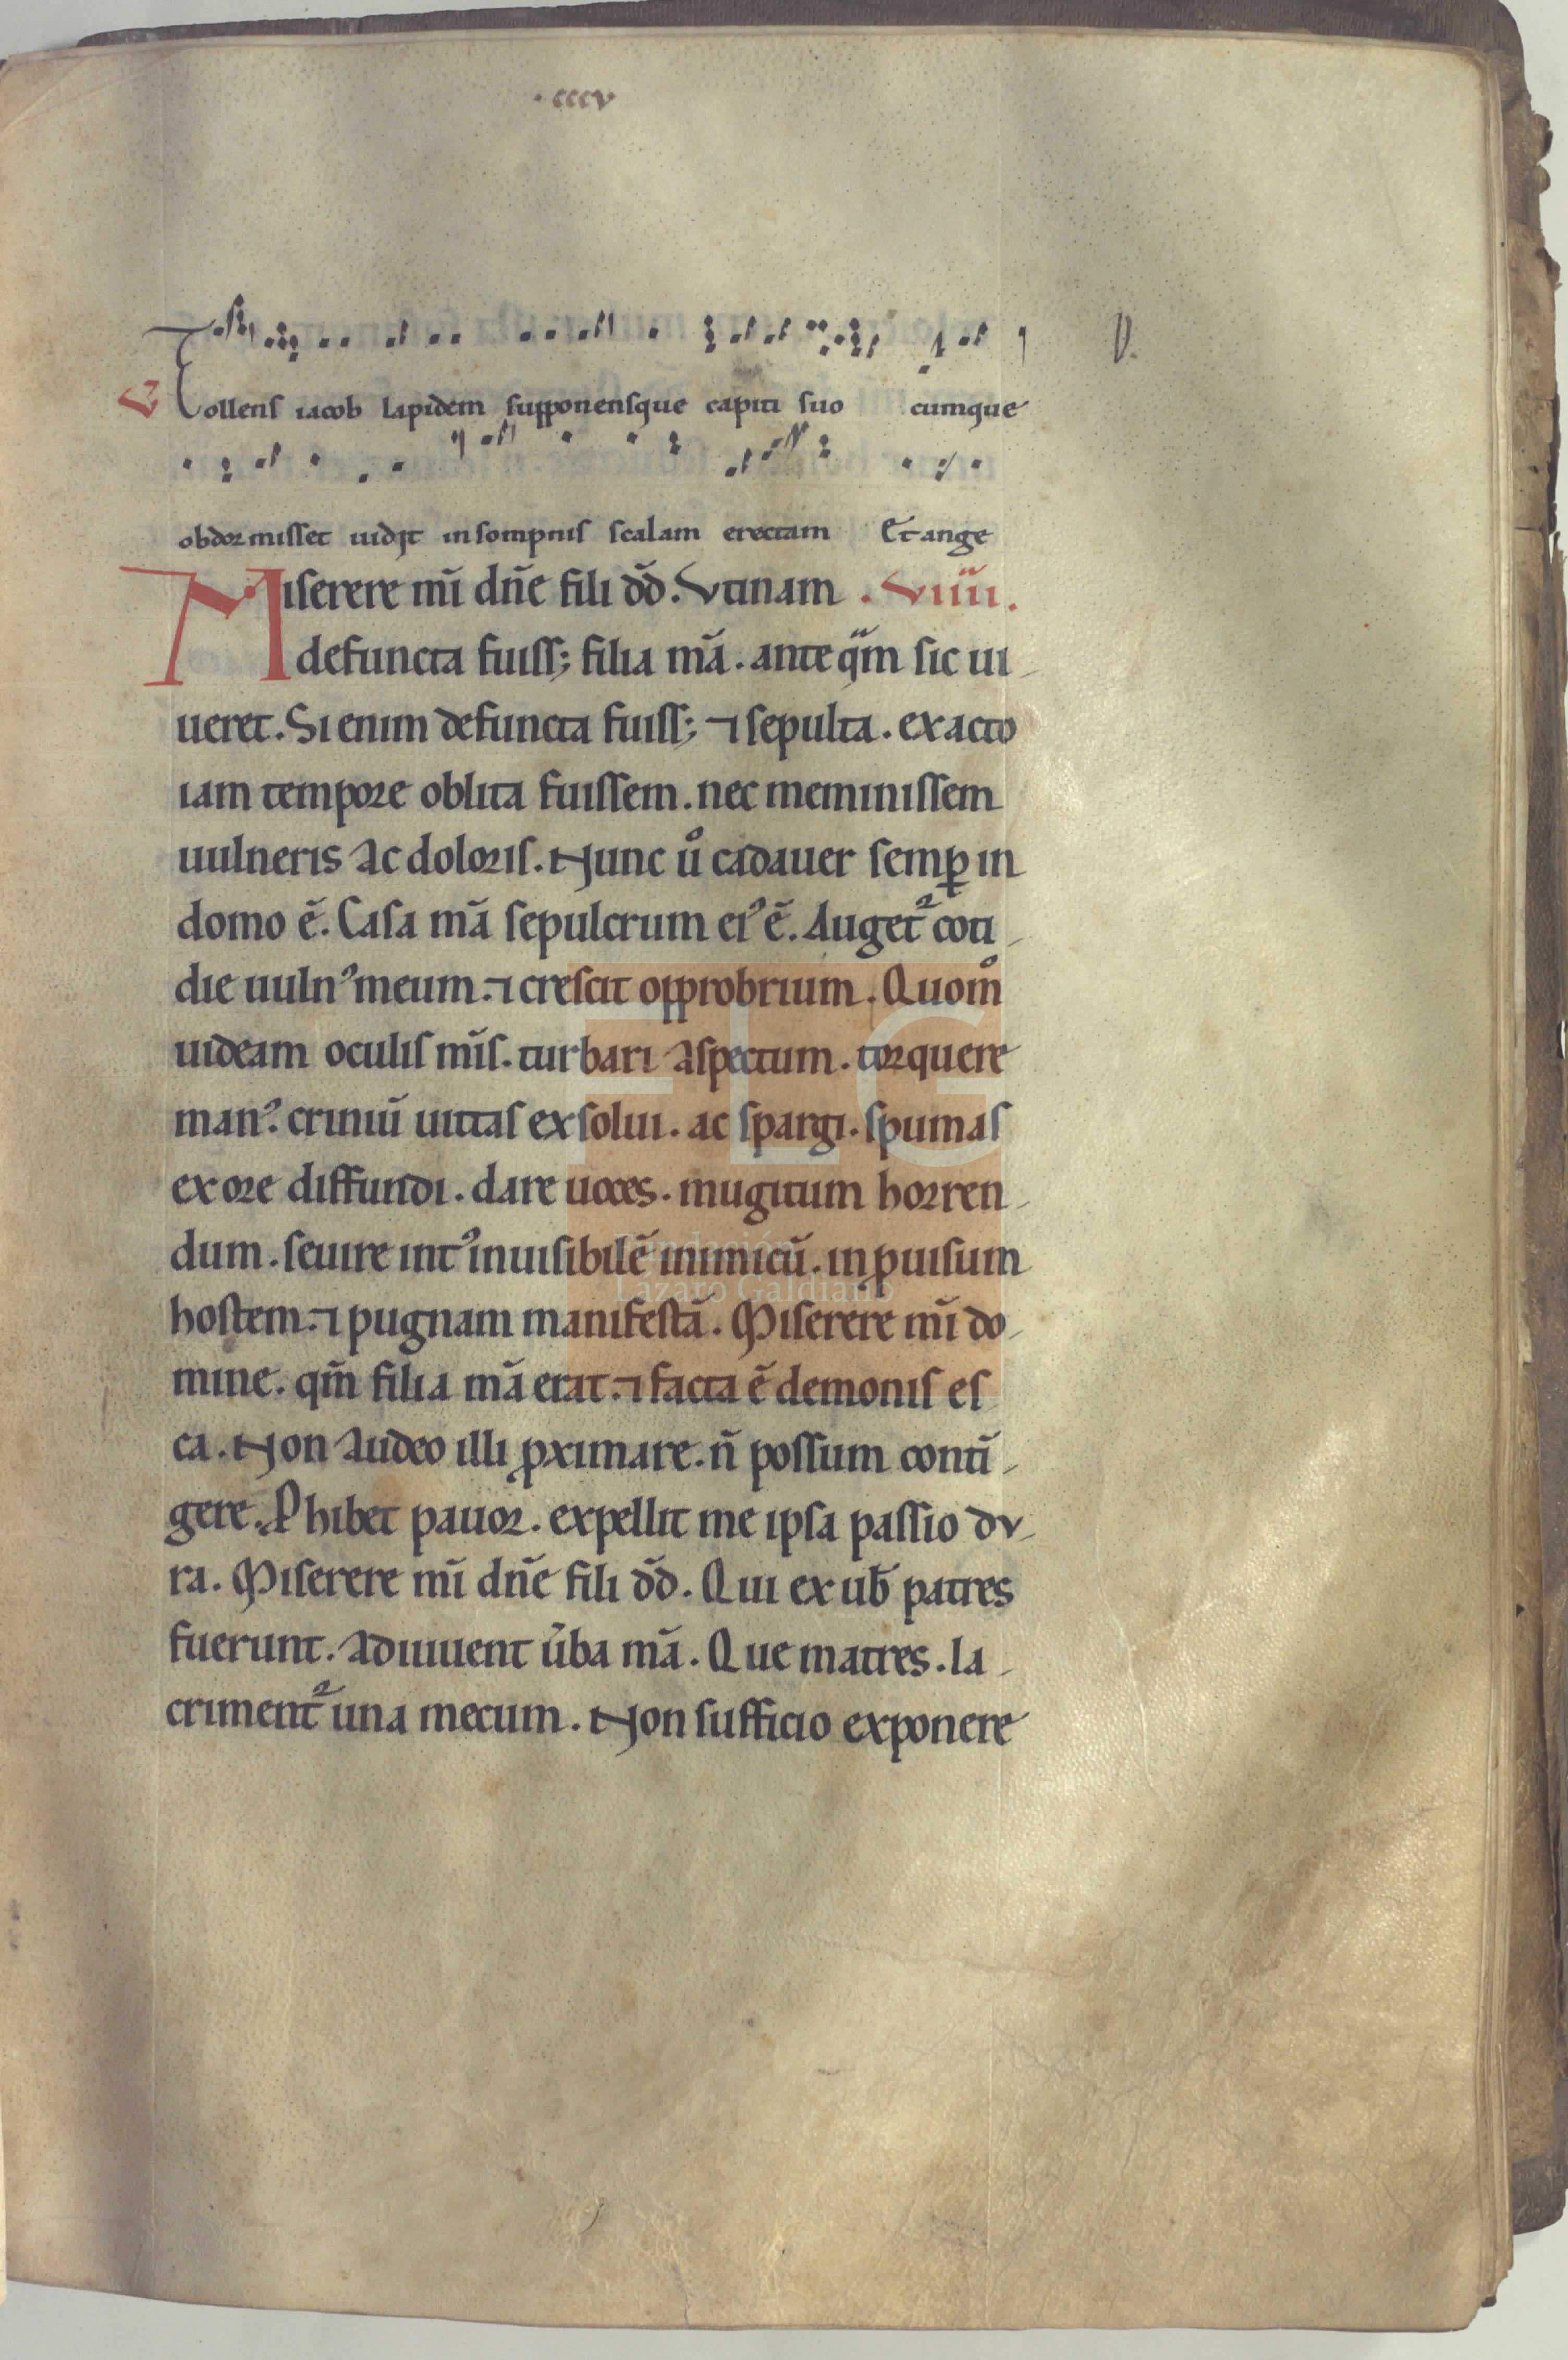 · cccv
V Tollens iacob lapidem supponensque capiti suo cumque
V.
obdormisset uidit in sompnis scalam erectam Et ange
Miserere mı̄ dn̄e fili dd̄. Utinam . Viiii.
defuncta fuiss; filia mā . ante qm sic ui
ueret . Si enim defuncta fuiss; ⁊ sepulta . exacto
iam tempore oblita fuissem . nec meminissem
uulneris ac doloris . Nunc uͦ cadauer semꝑ in
domo ē . Casa mā sepulcrum eiꝰ ē . Auget᷑ coti
die uulnꝰ meum . ⁊ crescit opprobrium . Quom̊
uideam oculis mı̄s . turbari aspectum . torquere
manꝰ . criniū uittas exsolui . ac spargi . spumas
ex ore diffundi . dare uoces . mugitum horren
dum . seuire intꝰ inuisibilē inimicū . inꝓuisum
hostem . ⁊ pugnam manifestā . Miserere mı̄ do
mine . qm̄ filia mā erat . ⁊ facta ē demonis es
ca . Non audeo illi ꝓximare . n̄ possum conti
gere . Phibet pauor . expellit me ipsa passio du
ra . Miserere mı̄ dn̄e fili dd̄ . Qui ex ub̄ patres
fuerunt . adiuuent ūba mā . Que matres . la
criment᷑ una mecum . Non sufficio exponere
Fundación
Lázaro Galdiano